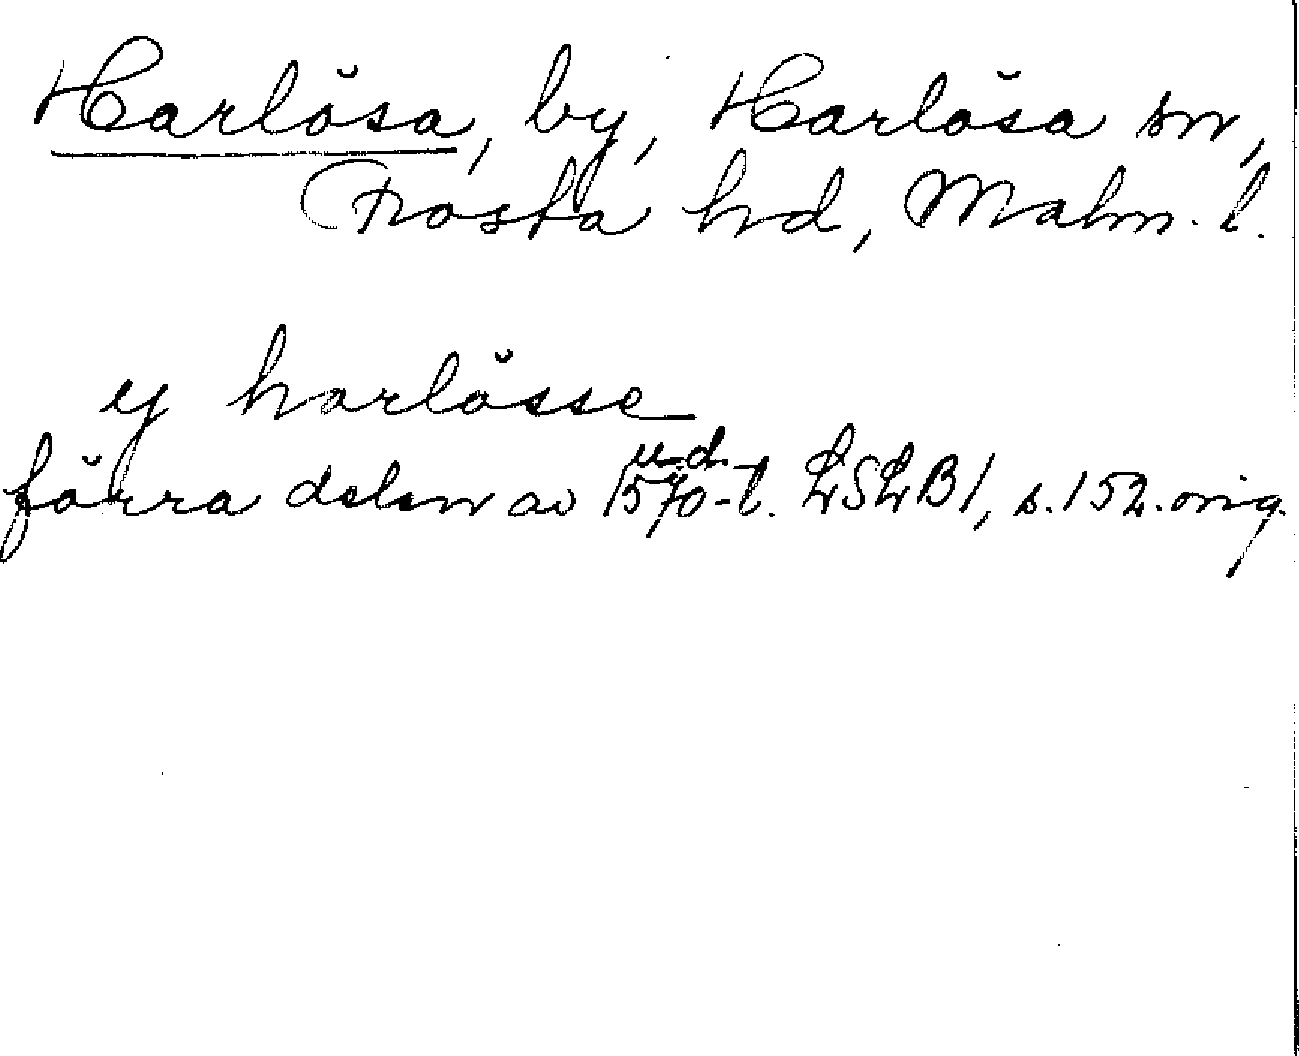 Harlösa, by, Harlösa sn,
Frosta hd, Malm. l.
ij harlösse
u.d.
förra delen av 1570-t. LSLB1, s. 152. orig.